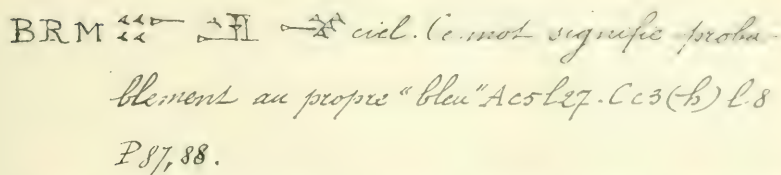 BRM ciel. Ce mot signifie proba-
blement au propre "bleu" Ac5 l27. Cc3(h) l.8
P87,88.